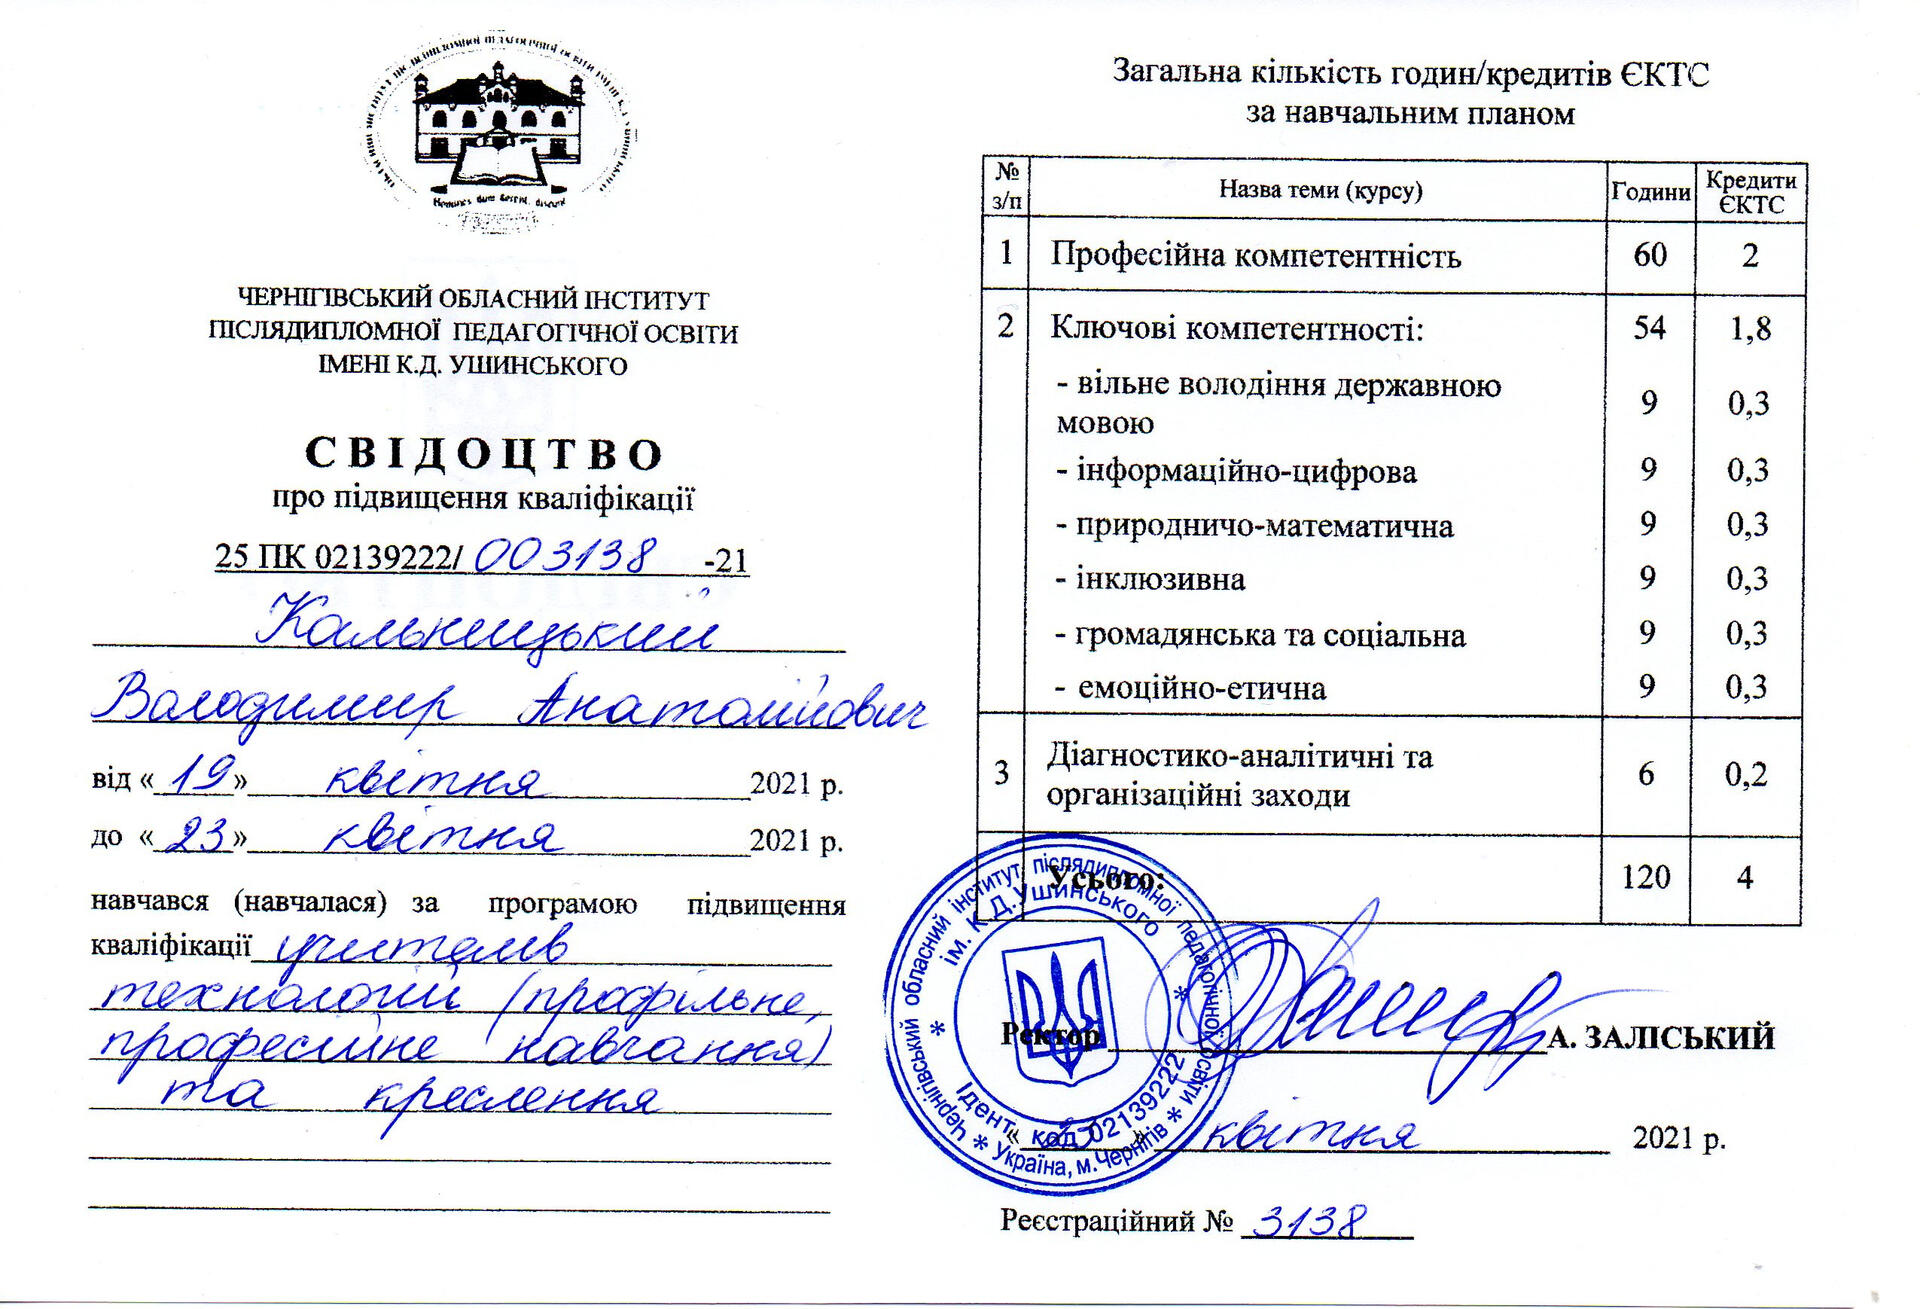 Homines dum docent, discunt
ЧЕРНІГІВСЬКИЙ ОБЛАСНИЙ ІНСТИТУТ
ПІСЛЯДИПЛОМНОЇ ПЕДАГОГІЧНОЇ ОСВІТИ
ІМЕНІ К.Д. УШИНСЬКОГО
СВІДОЦТВО
про підвищення кваліфікації
25 ПК 02139222/ 003138 -21
Кальницький
Володимир Анатолійович
від «19» квітня 2021 р.
до «23» квітня 2021 р.
навчався (навчалася) за програмою підвищення
кваліфікації учителів
технологій (профільне,
професійне навчання)
та креслення
Загальна кількість годин/кредитів ЄКТС
за навчальним планом
№ з/п Назва теми (курсу) Години Кредити ЄКТС
1 Професійна компетентність 60 2
2 Ключові компетентності: 54 1,8
- вільне володіння державною
мовою 9 0,3
- інформаційно-цифрова 9 0,3
- природничо-математична 9 0,3
- інклюзивна 9 0,3
- громадянська та соціальна 9 0,3
- емоційно-етична 9 0,3
3 Діагностико-аналітичні та
організаційні заходи 6 0,2
Усього: 120 4
Чернігівський обласний інститут післядипломної педагогічної освіти
ім. К.Д.Ушинського
Ідент. код 02139222
* Україна, м.Чернігів *
Ректор А. ЗАЛІСЬКИЙ
« » квітня 2021 р.
Реєстраційний № 3138